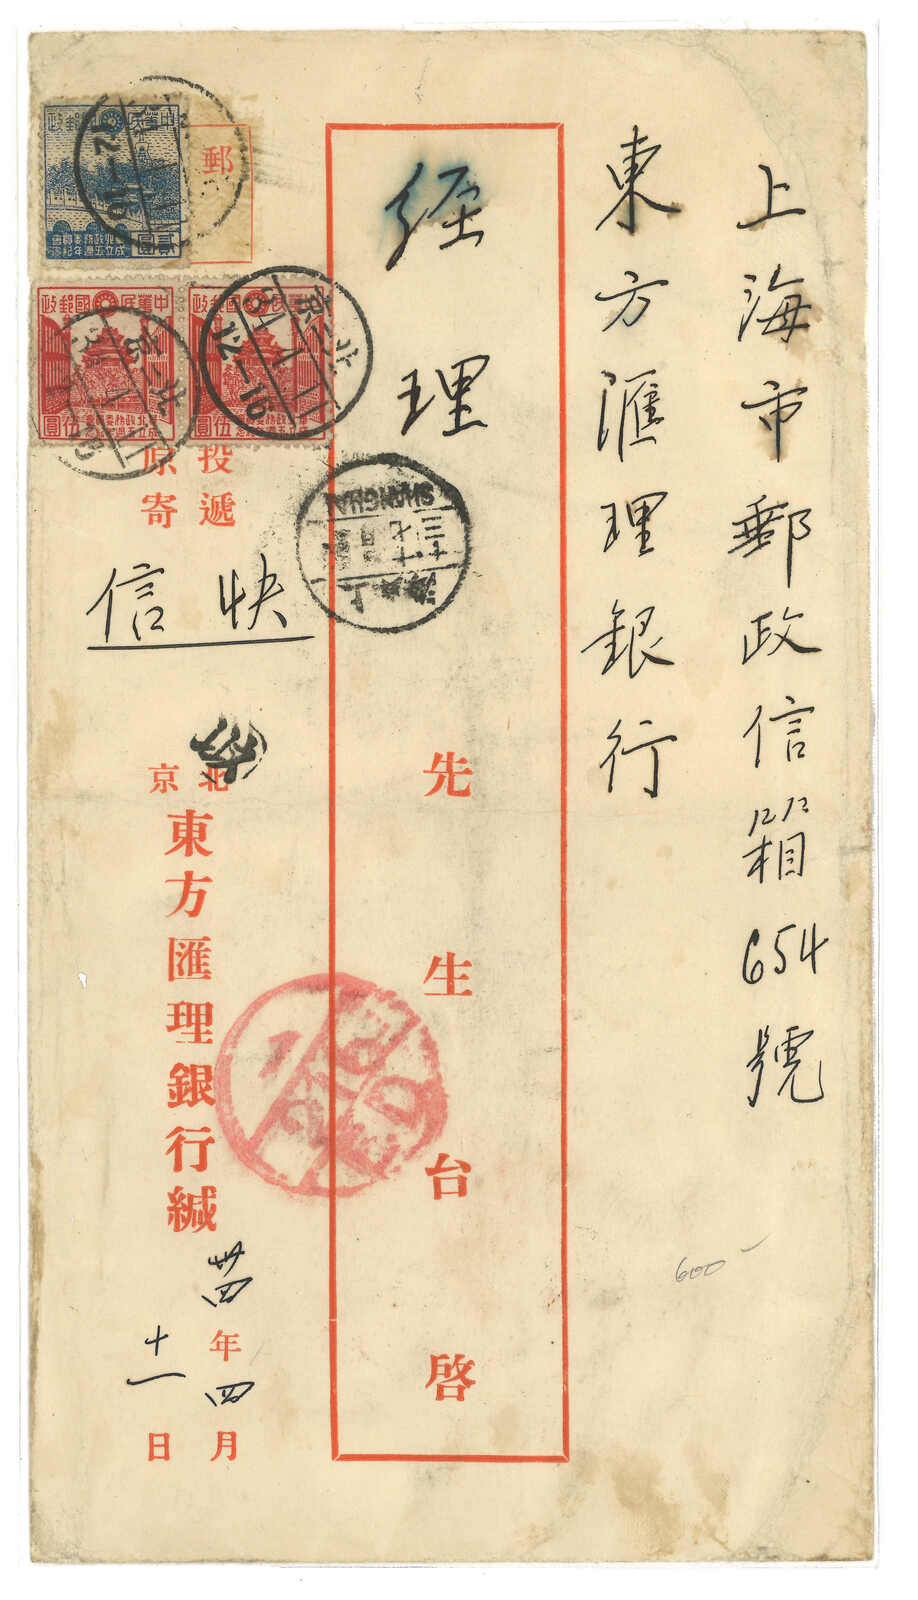 上海市郵政信箱654號
東方匯理銀行
經理
先生台啓
郵
投遞
原寄
快信
北京
東方匯理銀行緘
卅四年四月
十一日
中華民國郵政
貳圓
中華民國郵政
伍圓
伍圓
北京
12-16
北京
上海
SHANGHAI
600